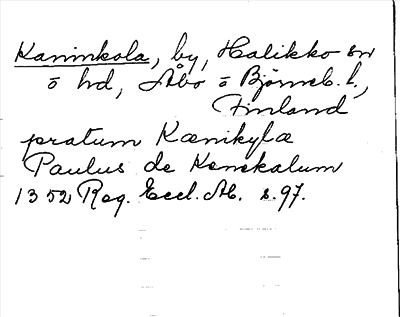 Kaninkola, by, Halikko sn
o hd, Åbo o Björneb. l.,
Finland
pratum Kænikylæ
Paulus de Kenekalum
1352 Reg. Eccl. Ab. s. 97.